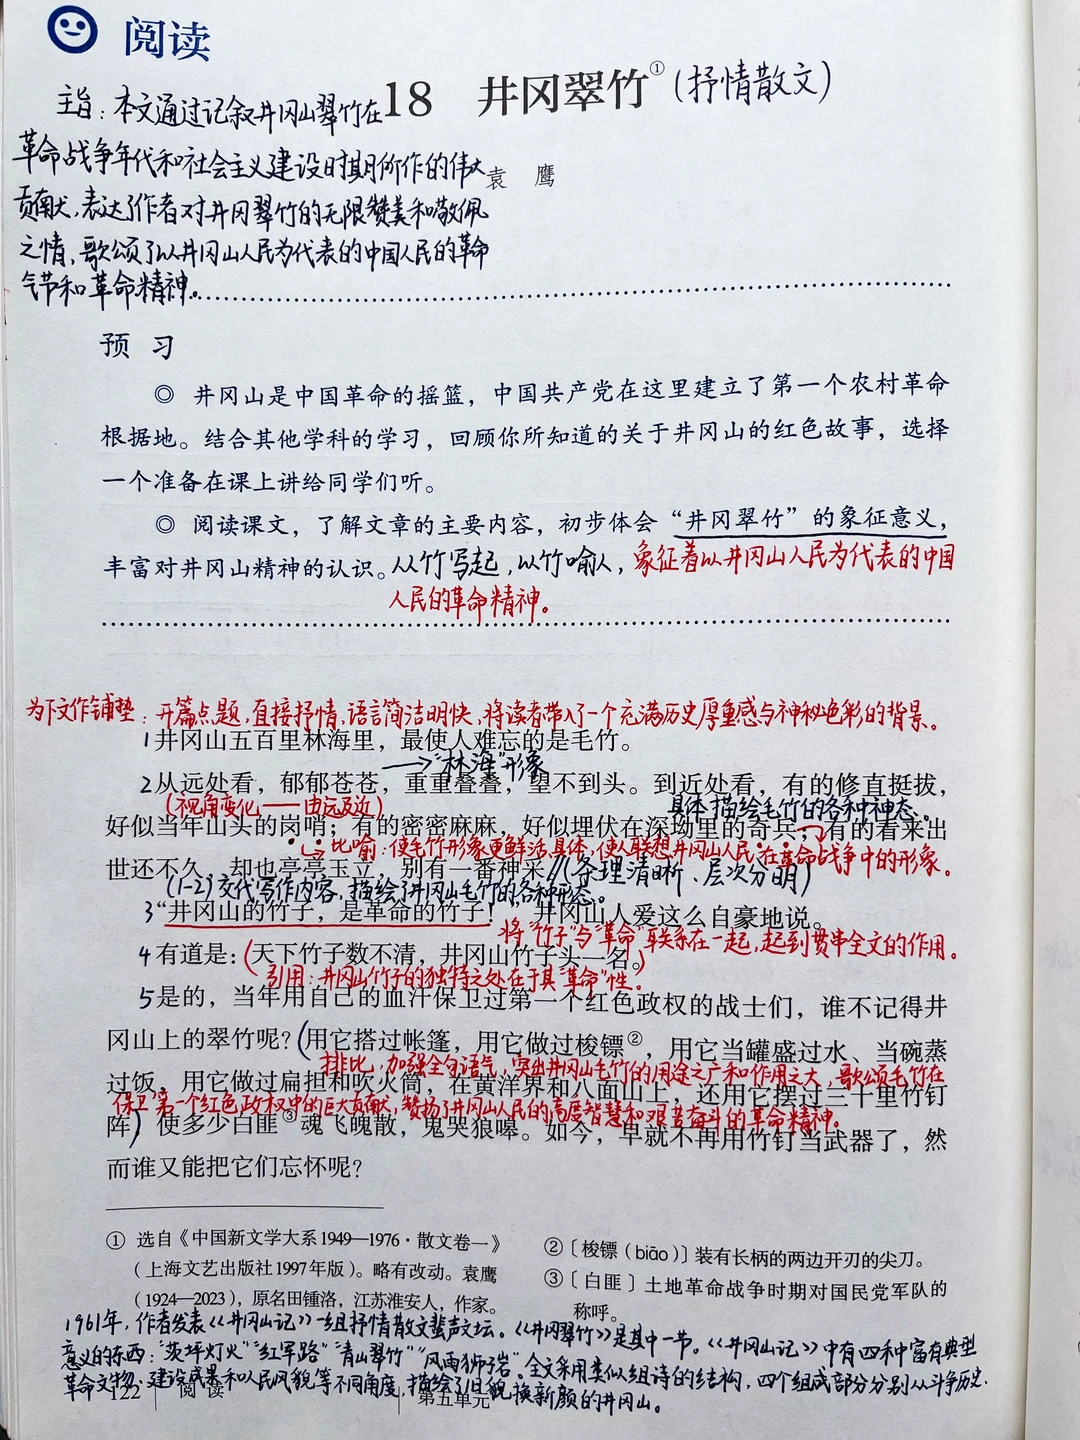 阅读
18 井冈翠竹①(抒情散文)
主旨：本文通过记叙井冈山翠竹在
革命战争年代和社会主义建设时期所作的伟大
袁 鹰
贡献，表达了作者对井冈翠竹的无限赞美和敬佩
之情，歌颂了以井冈山人民为代表的中国人民的革命
气节和革命精神。
预 习
◎ 井冈山是中国革命的摇篮，中国共产党在这里建立了第一个农村革命
根据地。结合其他学科的学习，回顾你所知道的关于井冈山的红色故事，选择
一个准备在课上讲给同学们听。
◎ 阅读课文，了解文章的主要内容，初步体会“井冈翠竹”的象征意义，
丰富对井冈山精神的认识。从竹写起，以竹喻人，象征着以井冈山人民为代表的中国
人民的革命精神。
为下文作铺垫：开篇点题，直接抒情，语言简洁明快，将读者带入了一个充满历史厚重感与神秘色彩的背景。
1井冈山五百里林海里，最使人难忘的是毛竹。
→“林海”形象
2从远处看，郁郁苍苍，重重叠叠，望不到头。到近处看，有的修直挺拔，
(视角变化——由远及近)
具体描绘毛竹的各种神态。
好似当年山头的岗哨；有的密密麻麻，好似埋伏在深坳里的奇兵；有的看来出
比喻：使毛竹形象更鲜活具体，使人联想井冈山人民在革命战争中的形象。
世还不久，却也亭亭玉立，别有一番神采。//(条理清晰、层次分明)
(1-2)交代写作内容，描绘了井冈山毛竹的各种形态。
3“井冈山的竹子，是革命的竹子！”井冈山人爱这么自豪地说。
将“竹子”与“革命”联系在一起，起到贯串全文的作用。
4有道是：(天下竹子数不清，井冈山竹子头一名。)
引用：井冈山竹子的独特之处在于其“革命”性。
5是的，当年用自己的血汗保卫过第一个红色政权的战士们，谁不记得井
冈山上的翠竹呢？(用它搭过帐篷，用它做过梭镖②，用它当罐盛过水、当碗蒸
排比，加强全句语气，突出井冈山毛竹的用途之广和作用之大，歌颂毛竹在
过饭，用它做过扁担和吹火筒，在黄洋界和八面山上，还用它摆过三十里竹钉
保卫第一个红色政权中的巨大贡献，赞扬了井冈山人民的高度智慧和艰苦奋斗的革命精神。
阵)使多少白匪③魂飞魄散，鬼哭狼嗥。如今，早就不再用竹钉当武器了，然
而谁又能把它们忘怀呢？
① 选自《中国新文学大系1949—1976·散文卷一》
（上海文艺出版社1997年版）。略有改动。袁鹰
（1924—2023），原名田锺洛，江苏淮安人，作家。
②〔梭镖（biāo）〕装有长柄的两边开刃的尖刀。
③〔白匪〕土地革命战争时期对国民党军队的
称呼。
1961年，作者发表《井冈山记》一组抒情散文蜚声文坛。《井冈翠竹》是其中一节。《井冈山记》中有四种富有典型
意义的东西：“茨坪灯火”“红军路”“青山翠竹”“风雨狮岩”。全文采用类似组诗的结构，四个组成部分分别从斗争历史、
革命文物、建设成果和人民风貌等不同角度，描绘了旧貌换新颜的井冈山。
122 阅 读 第五单元